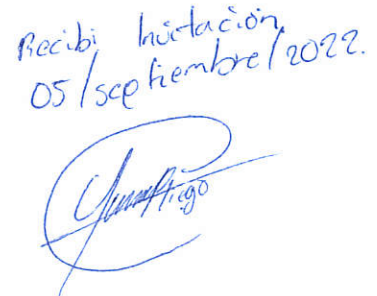 Recibi Invitación
05/septiembre/2022.